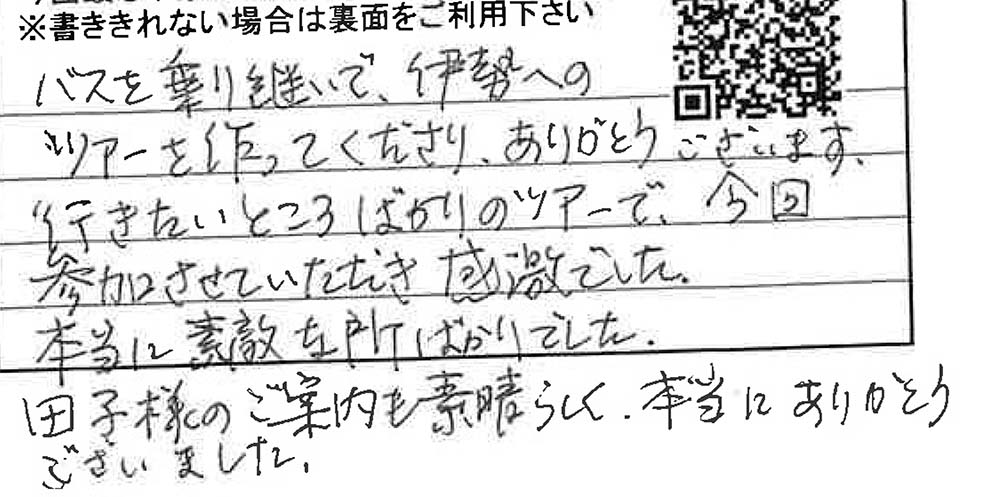 ※書ききれない場合は裏面をご利用下さい
バスを乗り継いで、伊勢への
ツアーを作ってくださり、ありがとうございます。
行きたいところばかりのツアーで、今回
参加させていただき感激でした。
本当に素敵な所ばかりでした。
田子様のご案内も素晴らしく、本当にありがとう
ございました。